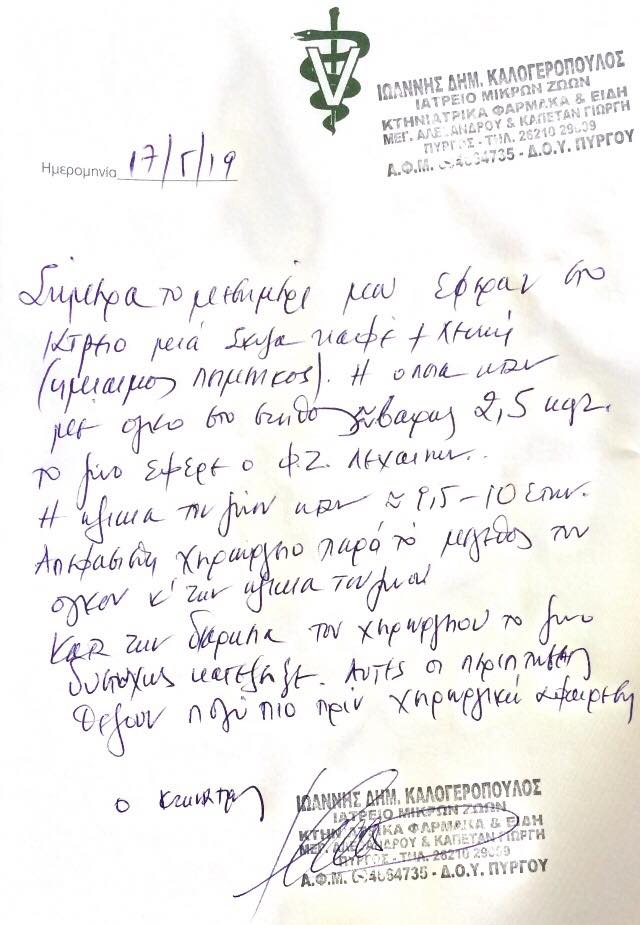 V
ΙΩΑΝΝΗΣ ΔΗΜ. ΚΑΛΟΓΕΡΟΠΟΥΛΟΣ
ΙΑΤΡΕΙΟ ΜΙΚΡΩΝ ΖΩΩΝ
ΚΤΗΝΙΑΤΡΙΚΑ ΦΑΡΜΑΚΑ & ΕΙΔΗ
ΜΕΓ. ΑΛΕΞΑΝΔΡΟΥ & ΚΑΠΕΤΑΝ ΓΙΩΡΓΗ
ΠΥΡΓΟΣ - ΤΗΛ. 26210 29809
Α.Φ.Μ. 4664735 - Δ.Ο.Υ. ΠΥΡΓΟΥ
Ημερομηνία 17/5/19
Σήμερα το μεσημέρι μου έφεραν στο
Ιατρείο μιά Σκυλα καφέ + λευκή
(ημίαιμος ποιμενικός). Η οποία
με ογκο στο στηθος ≈ βαρους 2,5 κιλ.
το ζώο εφερε ο Φ.Ζ. Λεχαινων.
Η ηλικια του ζώου ≈ 9,5-10 ετων.
Αποφασισθη χειρουργειο παρά το μεγεθος του
ογκου κ' την ηλικια του ζωου
Κατα την διαρκεια του χειρουργειου το ζωο
δυστυχως κατεληξε. Αυτες οι περιπτωσεις
θελουν πολύ πιο πρίν χειρουργική αφαιρεση
ο Κτηνιατρος
ΙΩΑΝΝΗΣ ΔΗΜ. ΚΑΛΟΓΕΡΟΠΟΥΛΟΣ
ΙΑΤΡΕΙΟ ΜΙΚΡΩΝ ΖΩΩΝ
ΚΤΗΝΙΑΤΡΙΚΑ ΦΑΡΜΑΚΑ & ΕΙΔΗ
ΜΕΓ. ΑΛΕΞΑΝΔΡΟΥ & ΚΑΠΕΤΑΝ ΓΙΩΡΓΗ
ΠΥΡΓΟΣ - ΤΗΛ. 26210 29809
Α.Φ.Μ. 4664735 - Δ.Ο.Υ. ΠΥΡΓΟΥ